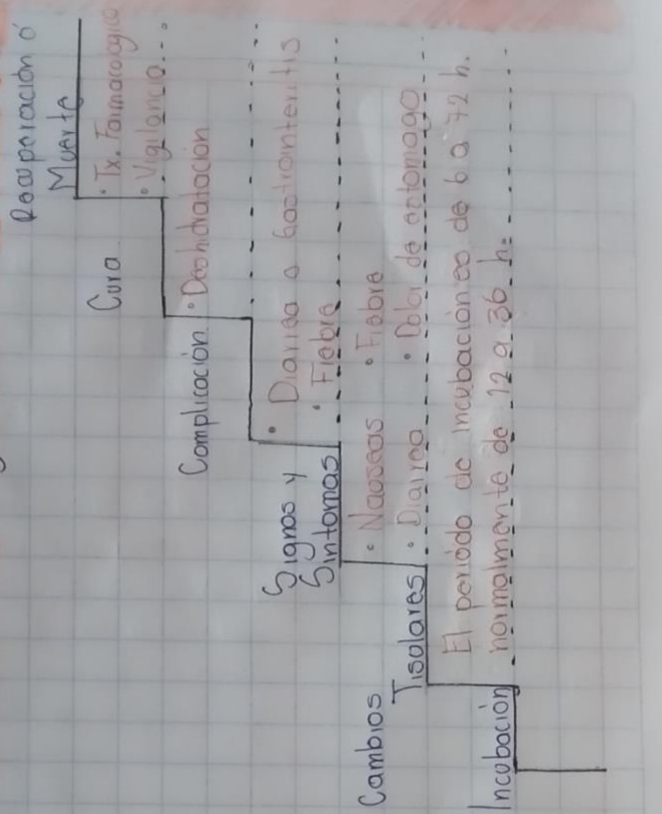 Recuperación ó
Muerte
Cura
• Tx. Farmacologico
• Vigilancia...
Complicación
• Deshidratación
Signos y
Sintomas
• Diarrea o Gastrointeritis
• Fiebre
Cambios
Tisulares
• Naoseas • Fiebre
• Diarrea • Dolor de estomago
Incubación
El período de incubación es de 6 a 72 h.
normalmente de 12 a 36 h.